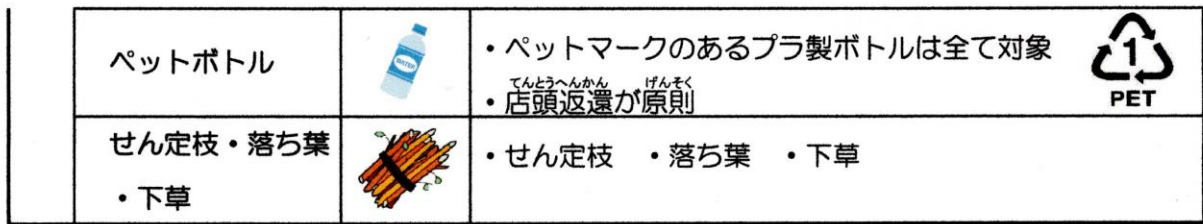 ペットボトル
WATER
・ペットマークのあるプラ製ボトルは全て対象
てんとうへんかん げんそく
・店頭返還が原則
1
PET
せん定枝・落ち葉
・下草
・せん定枝 ・落ち葉 ・下草